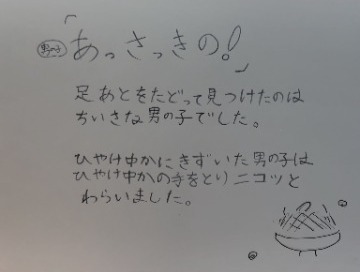 男の子「あっさっきの！」
足あとをたどって見つけたのは
ちいさな男の子でした。
ひやけ中かにきずいた男の子は
ひやけ中かの手をとりニコッと
わらいました。